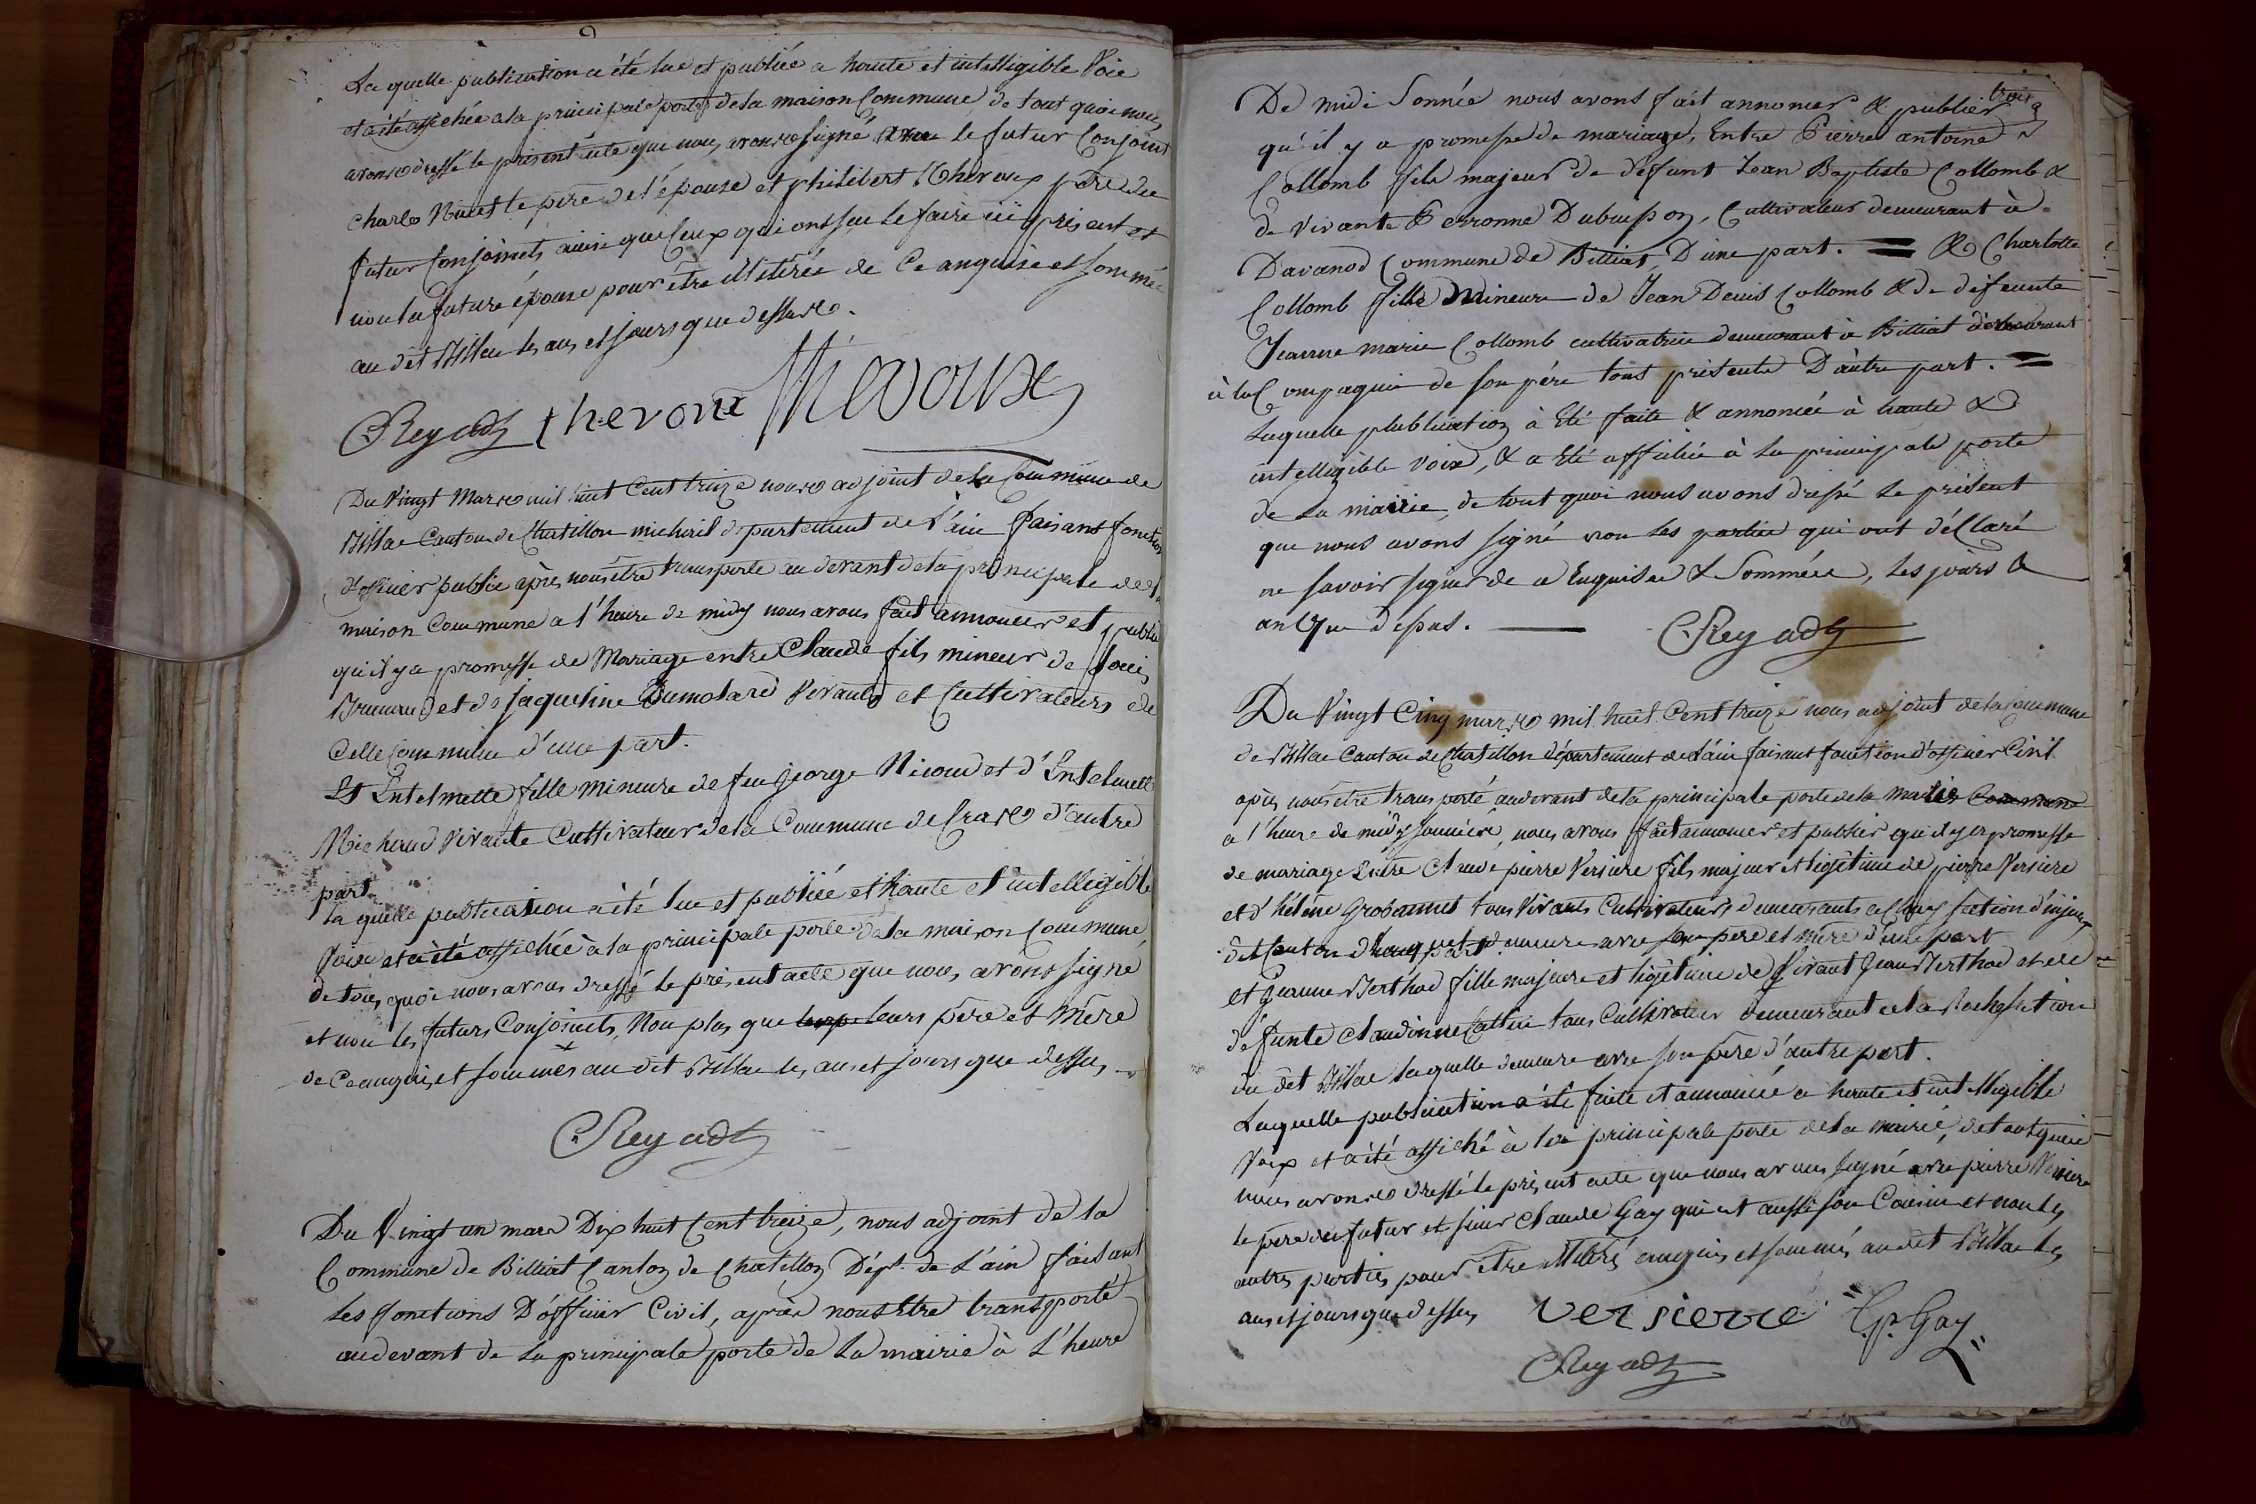 La quelle publication a été lue et publiée a haute et intelligible Voie
et a été affichée a la principale porte de la maison Commune de tout quoi nous
avons dressé le présent acte que nous avons signé avec le futur Conjoint
Charle le père de l'épouse et philibert Thevoux père du
futur Conjoints ainsi que Ceux qui ont su le faire ici présent et
non la future épouse pour être illitérée de Ce anquise et sommée
au dit Billiac les ans et jours que dessus.
Rey adt thevoux Thévoux
Du Vingt Mars mil huit Cent treize nous adjoint de la Commune de
Billac Canton de Chatillon michail departement de l'ain faisant fonction
d'officier public après nous être transporté au devant de la principale de la
maison Commune a l'heure de midy nous avons fait annoncer et publié
qu'il y a promesse de Mariage entre Claude fils mineur de Louis
et de Jaqueline Dumolard Vivants et Cultivateurs de
Celle Commune d'une part.
Et Entelmette fille mineure de feu George Nicoud et d'Entelmette
Michaud Vivante Cultivateur de la Commune de Cras d'autre
part.
La quelle publication a été lue et publiée et haute et intelligible
Voix et a été affichée à la principale porte de la maison Commune
de tous quoi nous avons dressé le présent acte que nous avons signé
et non les futurs Conjoints, Non plus que leurs père et Mère
de Ce anquis et sommés au dit Billac les ans et jours que dessus
Rey adt
Du Vingt un mars Dix huit Cent treize, nous adjoint de la
Commune de Billiat Canton de Chatillon Dépt. de L'ain faisant
les fonctions D'officier Civil, après nous Etre transporté
au devant de La principale porte de La mairie à L'heure
trois
De midi Sonnée nous avons fait annoncer & publier
qu'il y a promesse de mariage, Entre Pierre antoine
Collomb fils majeur de défunt Jean Baptiste Collomb &
de Vivante Perronne Dubuisson, Cultivateur demeurant à
Davanod Commune de Billiat, D'une part. = & Charlotte
Collomb fille Mineure de Jean Denis Collomb & de défeunte
Jeanne marie Collomb cultivatrice demeurant à Billiat demeurant
à la Compagnie de son père tous présents D'autre part. =
Laquelle publication à Eté faite & annoncée à haute &
intelligible voix, & a Eté affichée à La principale porte
de La mairie, de tout quoi nous avons dressé Le présent
que nous avons signé non Les parties qui ont déclaré
ne savoir signer de ce Enquises & Sommées, Les jours &
an Que dessus.
Rey adt
Du Vingt Cinq mars mil huit Cent treize nous adjoint de la Commune
de Billac Canton de Chatillon département de l'ain faisant fonction d'officier Civil
après nous être transporté au devant de la principale porte de la Mairie Commune
a l'heure de midy sonnée, nous avons fait annoncer et publier qu'il y a promesse
de mariage Entre Claude pierre Versiere fils majeur et ligétime de pierre Versiere
et d'héléne Grobannet tous Vivants Cultivateurs demeurants a section d'injoux
dit Canton demeure avec son père et mère d'une part
et Jeanne Berthod fille majeure et ligétime de Vivant Jean Berthod et de
défunte Claudinne Cattin tous Cultivateur demeurant a la Roche section
du dit Billac laquelle demeure avec son père d'autre part.
Laquelle publication a été faite et annoncée a haute et intelligible
Voix et a été affiché à la principale porte de la mairie, de tout quoi
nous avons dressé le présent acte que nous avons signé avec pierre Versiere
le père du futur et sieur Claude Gay qui est aussi son Cousin et non les
autres parties pour être illitéré enquis et sommés au dit Billac les
ans et jours que dessus Versierre C.p. Gay
Rey adt